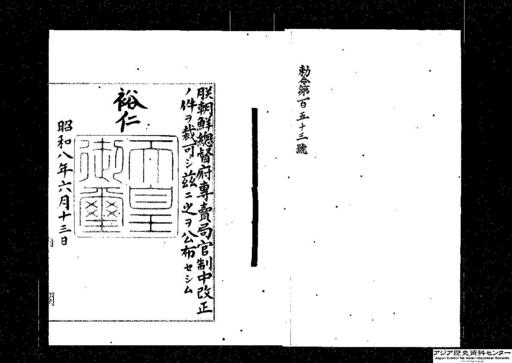 勅令第百五十三號
朕朝鮮總督府專賣局官制中改正
ノ件ヲ裁可シ玆ニ之ヲ公布セシム
裕仁
天皇
御璽
昭和八年六月十三日
アジア歴史資料センター
Japan Center for Asian Historical Records